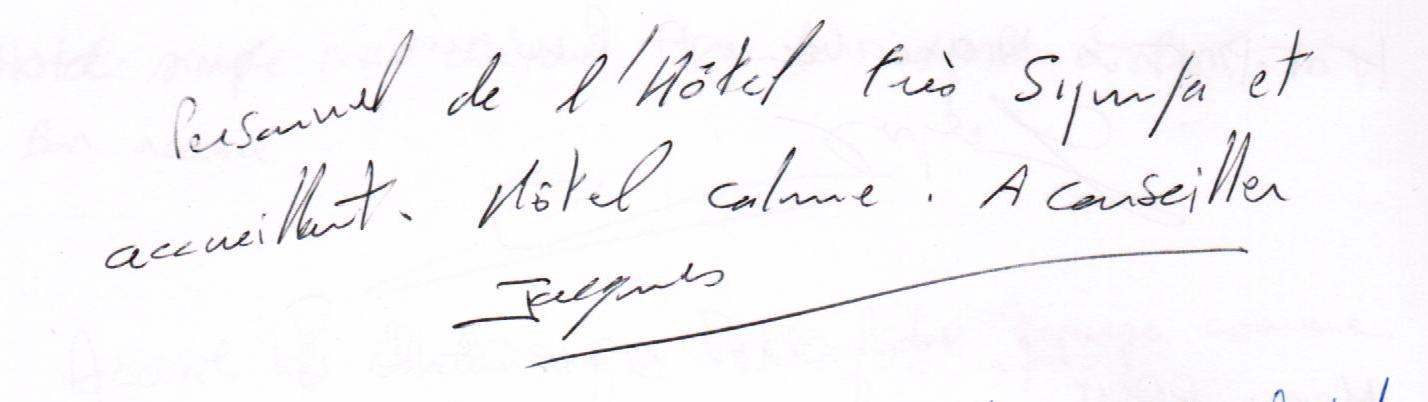 Personnel de l'Hôtel très Sympa et
accueillant. Hôtel calme. A conseiller
Jacques